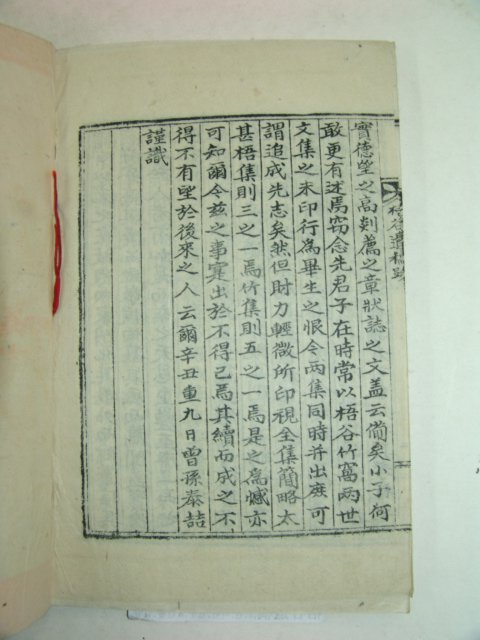 實德望之高剡薦之章狀誌之文盖云備矣小子何
敢更有述焉窃念先君子在時常以梧谷竹窩兩世
文集之未印行為畢生之恨令兩集同時并出庶可
謂追成先志矣然但財力輕微所印視全集簡略太
甚梧集則三之一焉竹集則五之一焉是之為憾亦
可知爾令茲之事寔出於不得已焉其續而成之不
得不有望於後來之人云爾辛丑重九日曽孫泰喆
謹識
梧谷遺稿跋